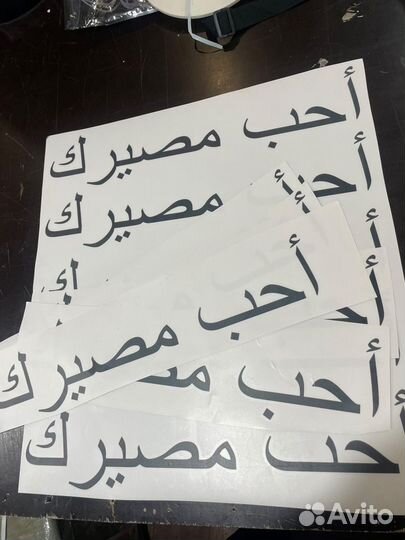 أحب مصيرك
أحب مصيرك
أحب مصيرك
أحب مص
أحب مصيرك
Avito